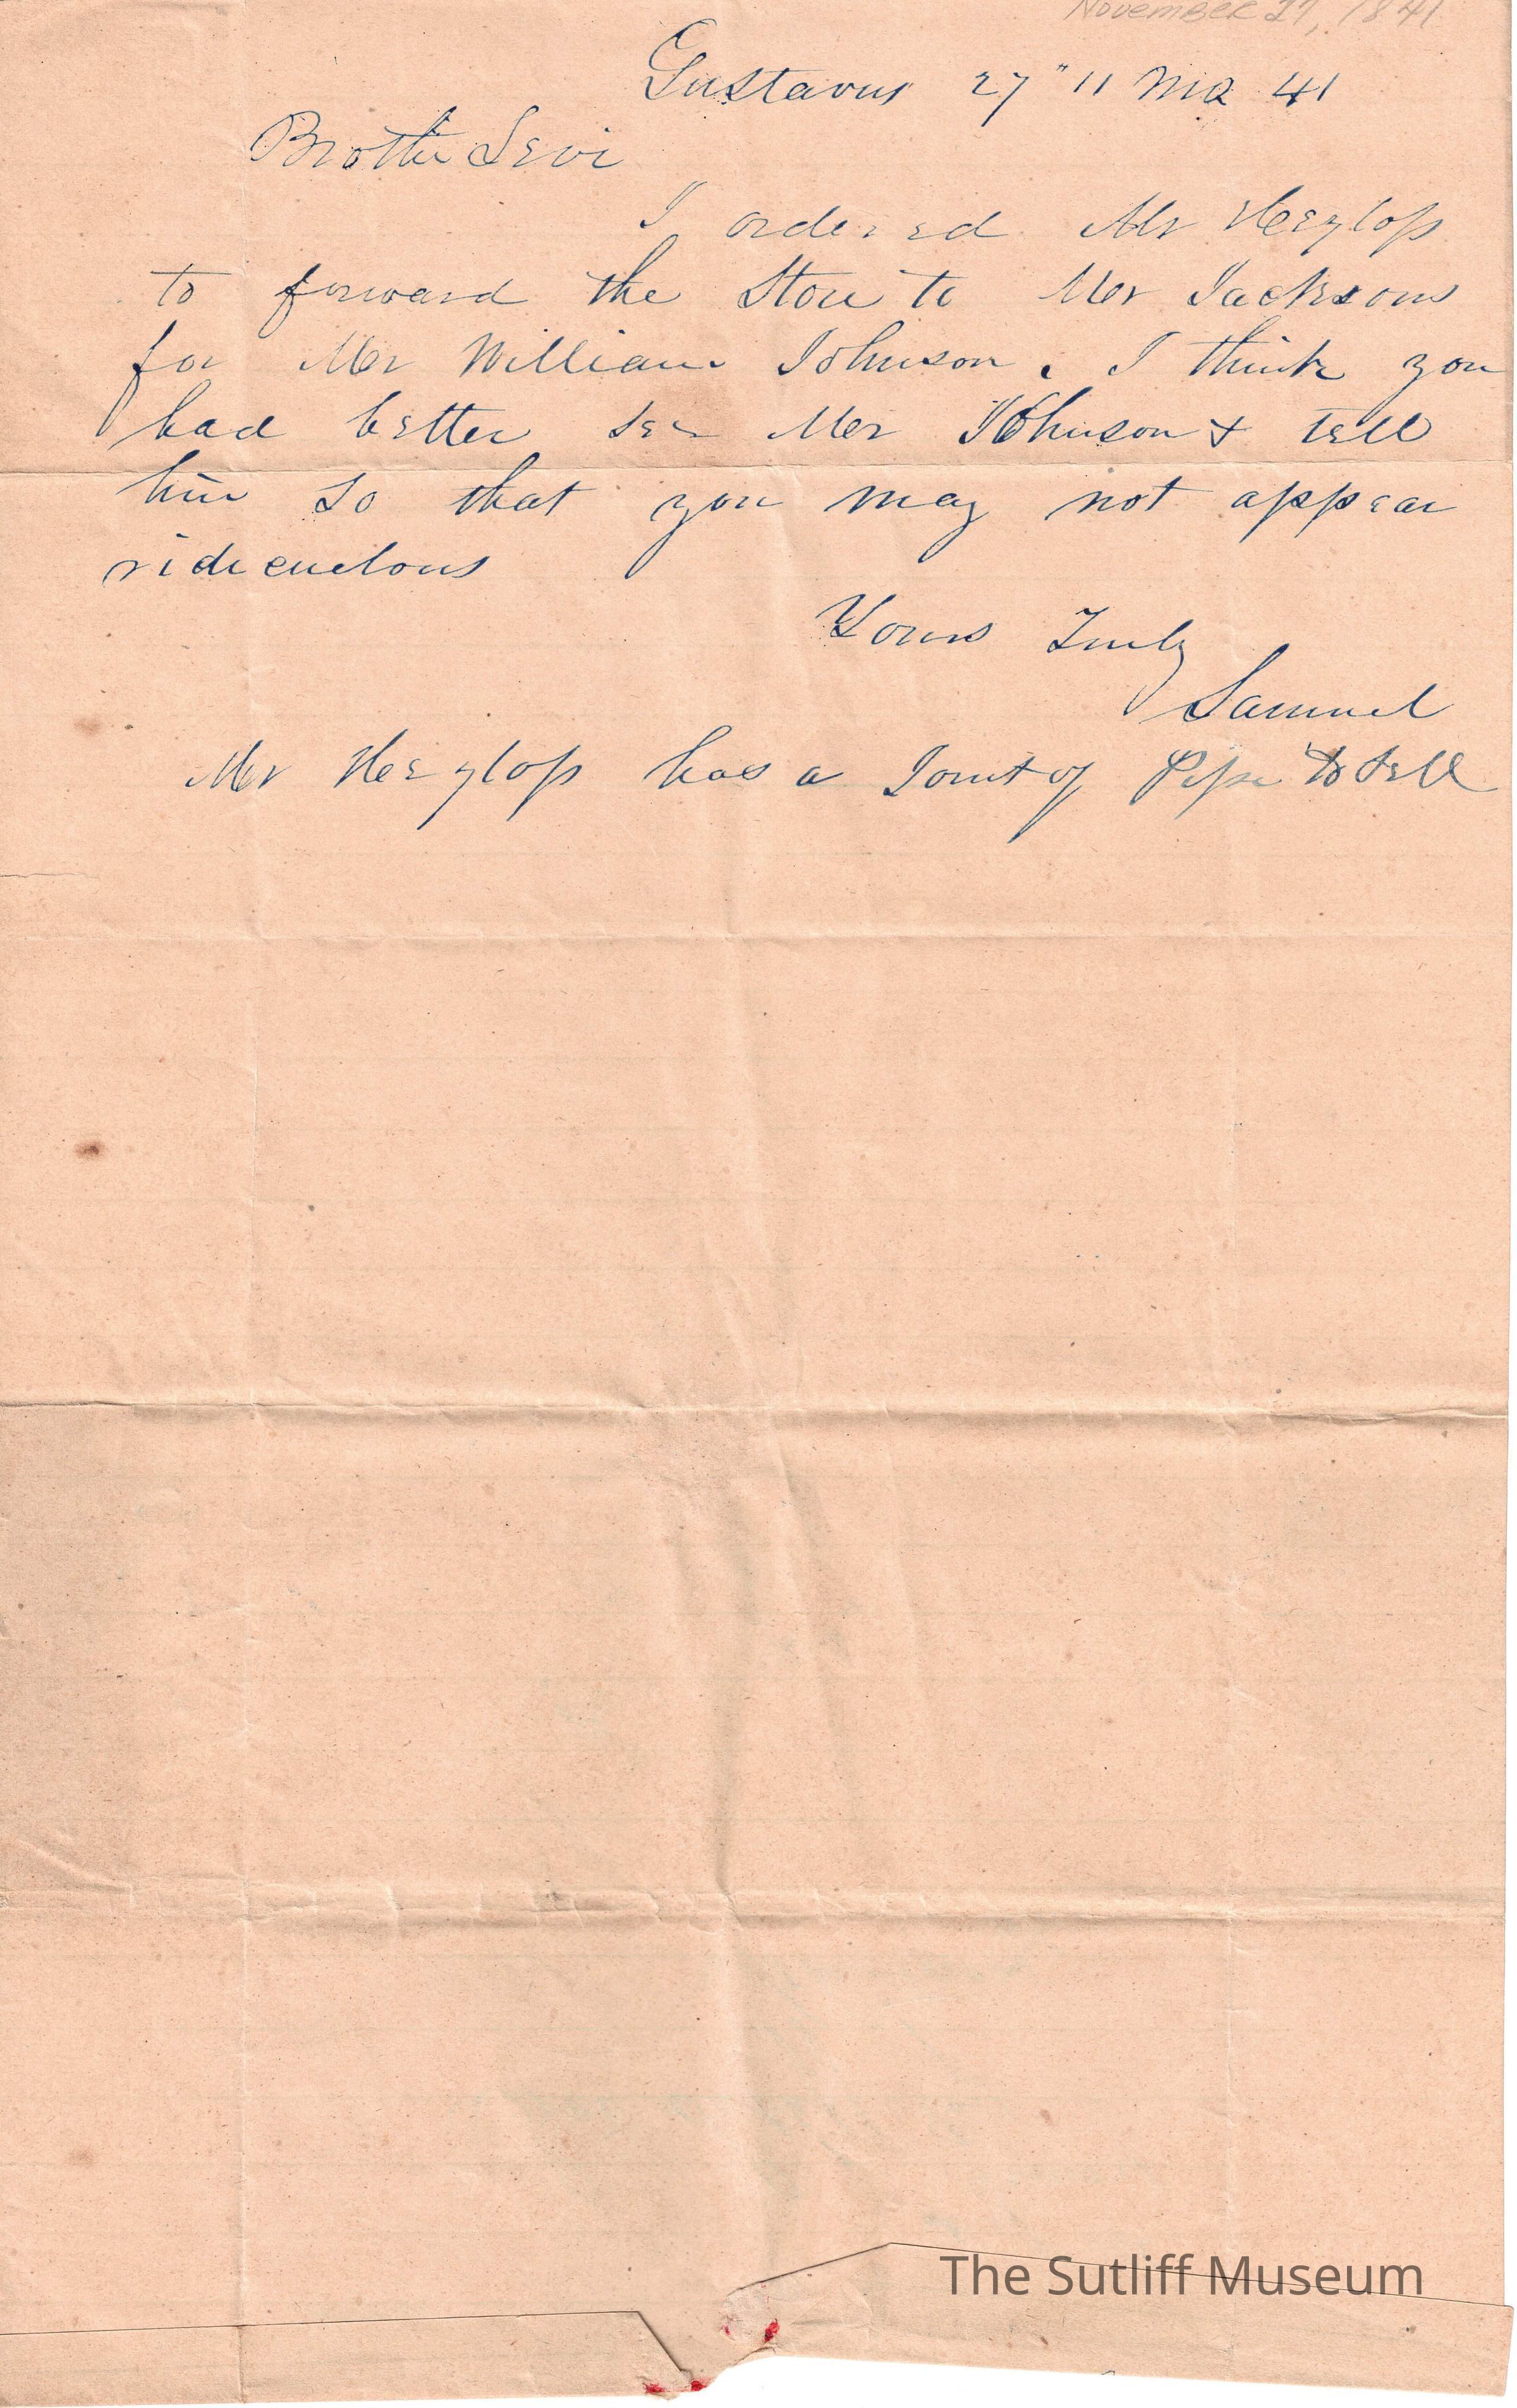 November 27, 1841
Gustavus 27" 11 Mo 41
Brother Levi
I ordered Mr
to forward the Stove to Mr Jacksons
for Mr William Johnson. I think you
had better see Mr Johnson & tell
him so that you may not appear
ridiculous
Yours Truly
Samuel
Mr has a Joint of Pipe to sell
The Sutliff Museum